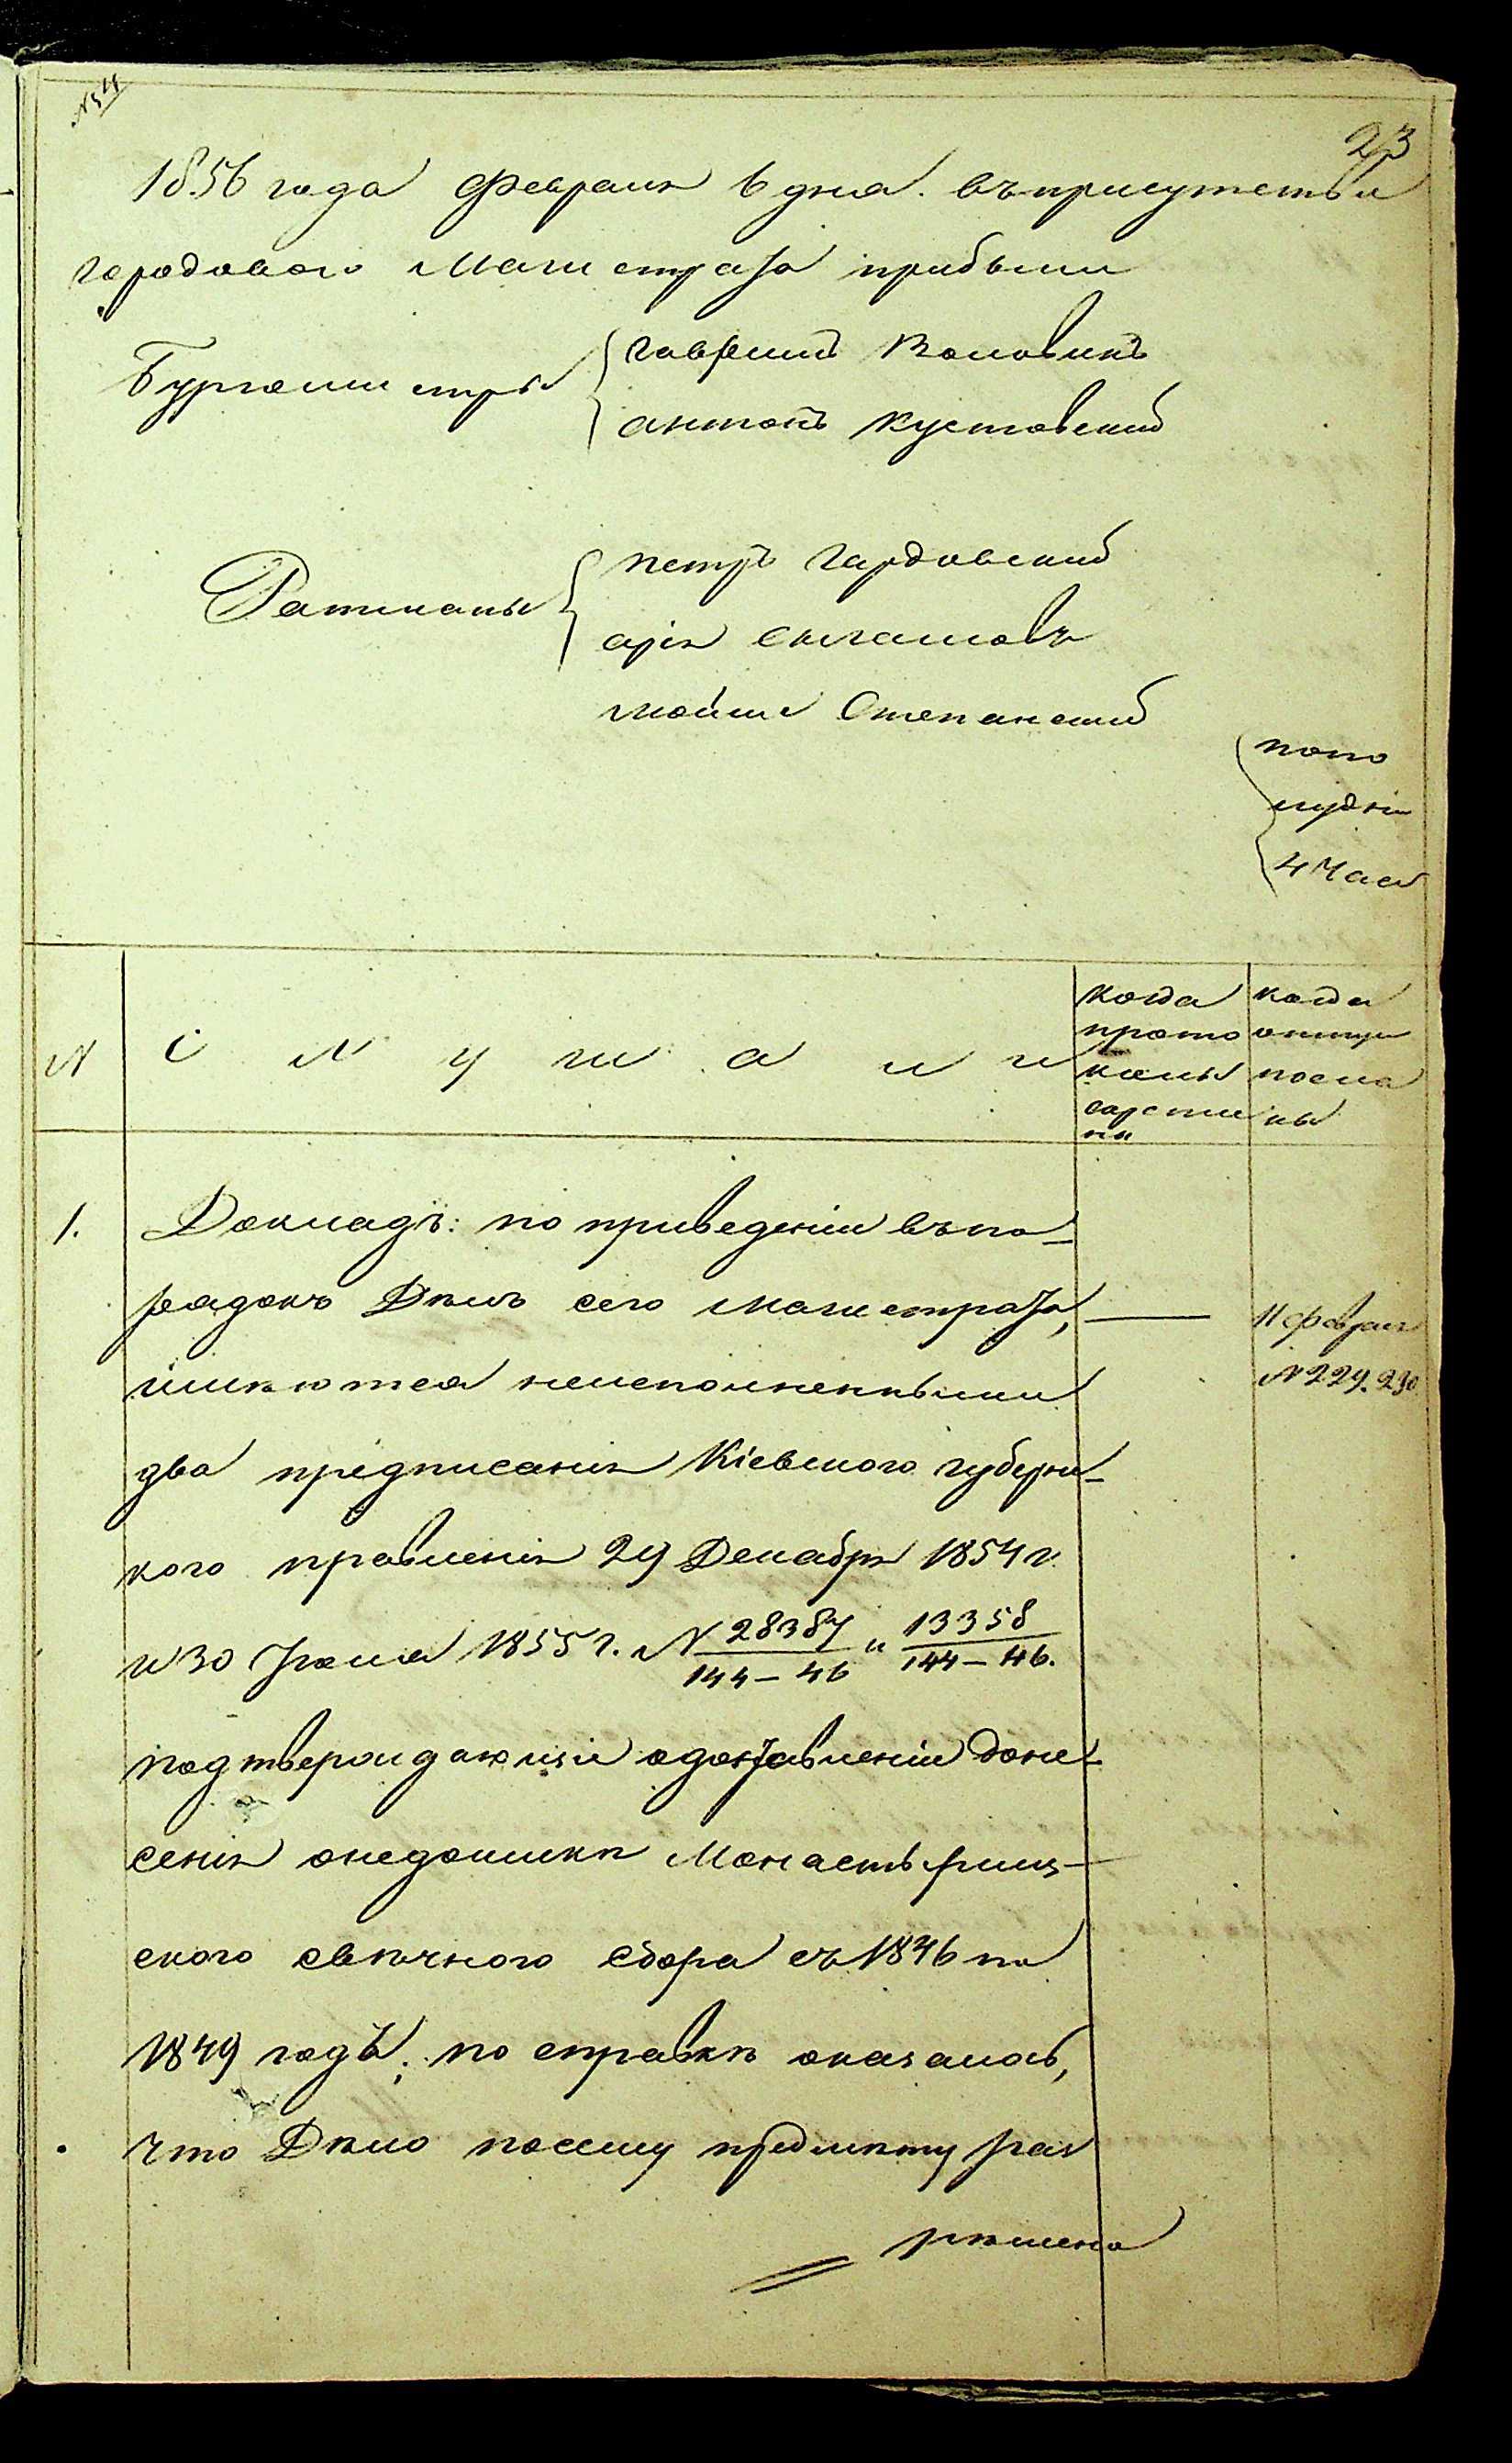 № 4
23
1856 года Февраля 6 дня. въ присутствіи
городоваго Магистрата прибыли
Бургомистры
Гаврiилъ Воловикъ
Антонъ Кустовскій
Ратманы
Петръ Гардовскій
Арія
Мойше Степанскій
попо
лудни
4 часа
№
Слушали
когда прото колы
когда отпуски посла ны
1.
Докладъ: по приведеніи въ по-
рядокъ Дѣлъ сего магистрата,
имѣются неисполненными
два предписанія Кіевского Губернс-
кого правленія 29 Декабря 1854 г.
и 30 Іюня 1855 г. № 28387/144-46 и 13358/144-46.
подтверждающія о доставленіи доне-
сенія о недоимкѣ Монастырищ-
ского свѣчного сбора съ 1846 по
1849 годъ; по справкѣ оказалось,
что Дѣло по сему предмету раз
рѣшено
11 Февраля
№ 229. 230